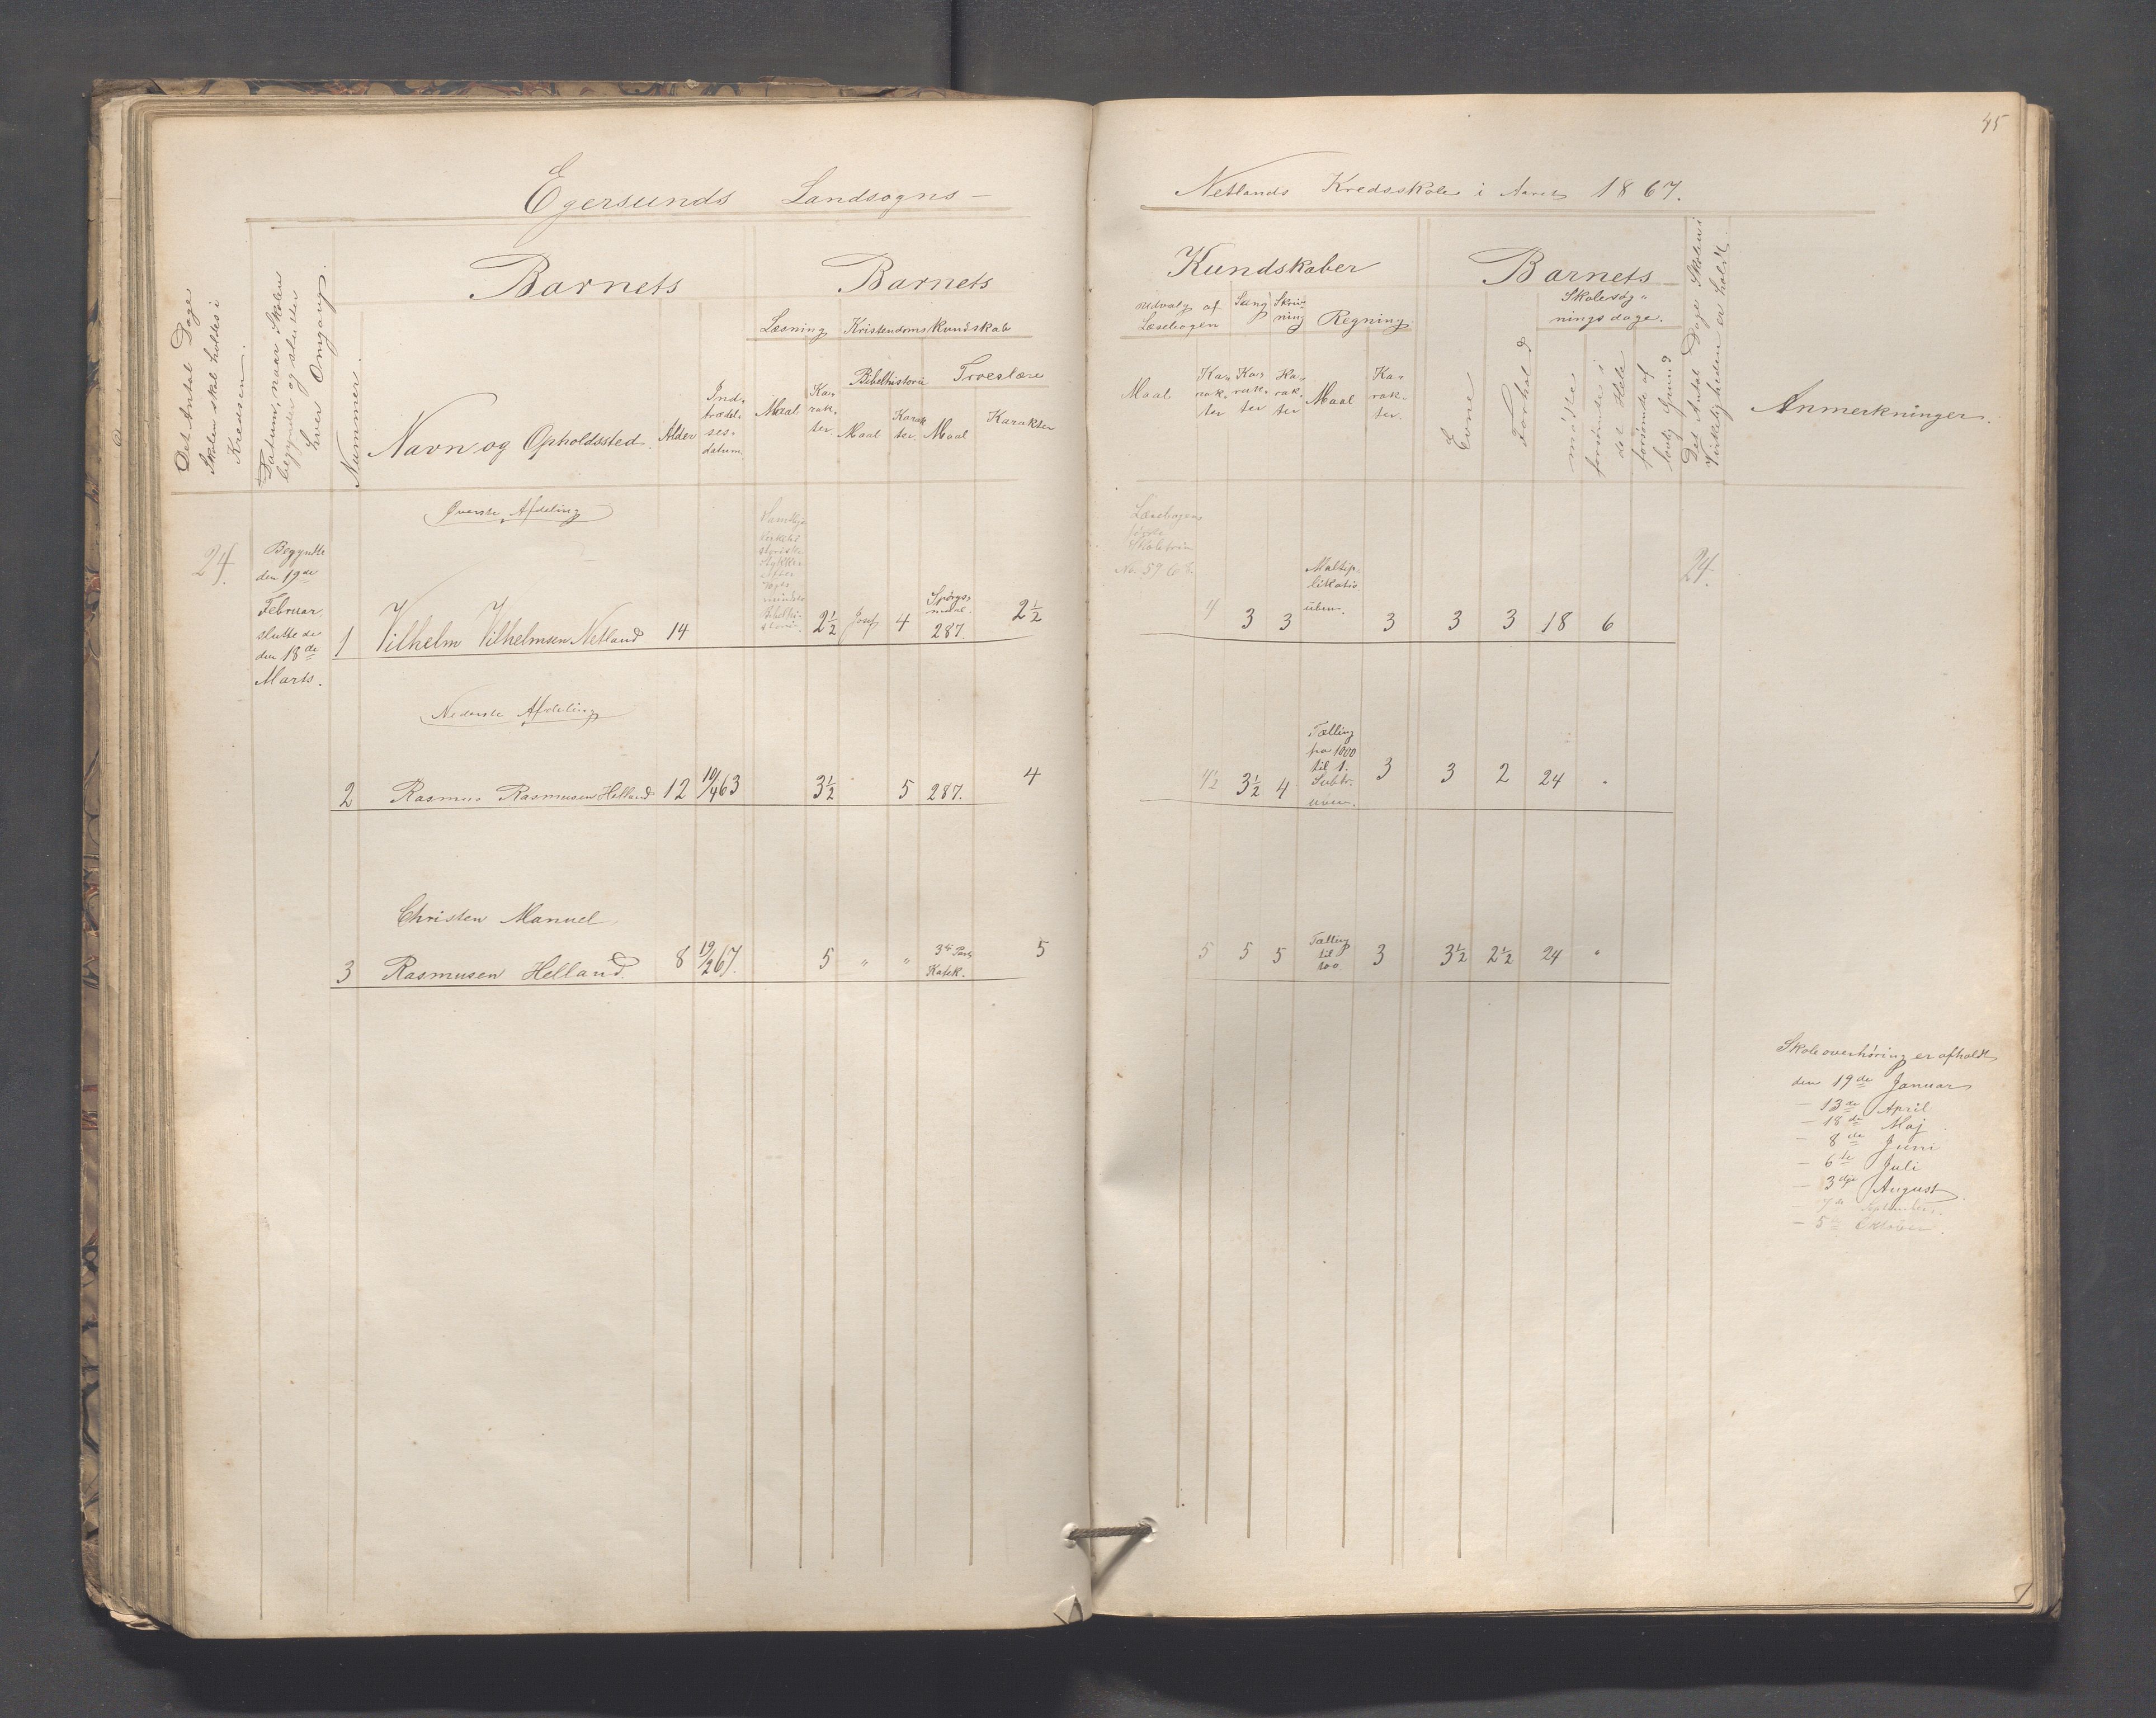 45
Egersunds Landsogns —
Netlands Kredsskole i Aaret 1867.
Det Antal Dage
Skolen skal holdes i
Kredsen.
Datum, naar Skolen
begynder og slutter
hver Omgang.
Nummer.
Barnets
Navn og Opholdssted.
Alder
Ind-
trædel-
ses-
datum.
Barnets
Læsning
Kristendomskundskab
Maal
Ka-
rak-
ter.
Bibelhistorie
Troeslære
Maal
Karak
ter.
Maal
Karakter
Kundskaber
Udvalg af
Læsebogen
Sang
Skriv
ning
Regning.
Maal
Ka-
rak-
ter
Ka-
rak-
ter
Ka-
rak-
ter
Maal
Ka-
rak-
ter.
Barnets
Evne
Forhold
Skolesøg-
ningsdage.
mødte
forsømte i
det Hele
forsømte af
lovlig Grund
Det Antal Dage Skolen i
Virkeligheden er holdt.
Anmerkninger.
Øverste Afdeling
24.
Begyndte
den 19de
Februar,
sluttede
den 18de
Marts.
1 Vilhelm Vilhelmsen Netland 14
2½ Josef 4
Spørgs-
maal
287.
2½
Læsebogen
første
Skoletrin
No 59
4 3 3
Multip-
likation
üben.
3 3 3 18 6
24.
Nederste Afdeling
2 Rasmus Rasmusen Helland 12 10/4 63 3½ 5 287. 4
4½ 3½ 4
Tælling
fra 1000
til 1.
Subtr.
uben.
3 3 2 24 "
Christen Manuel
3 Rasmusen Helland. 8 19/2 67. 5 " "
3die Part
Katek.
5
5 5 5
Tælling
til
100
3 3½ 2½ 24 "
Skoleoverhøring er afholdt
den 19de Januar
— 13de April
— 18de Maj
— 8de Juni
— 6te Juli
— 3dje August
— 7de September.
— 5te Oktober.